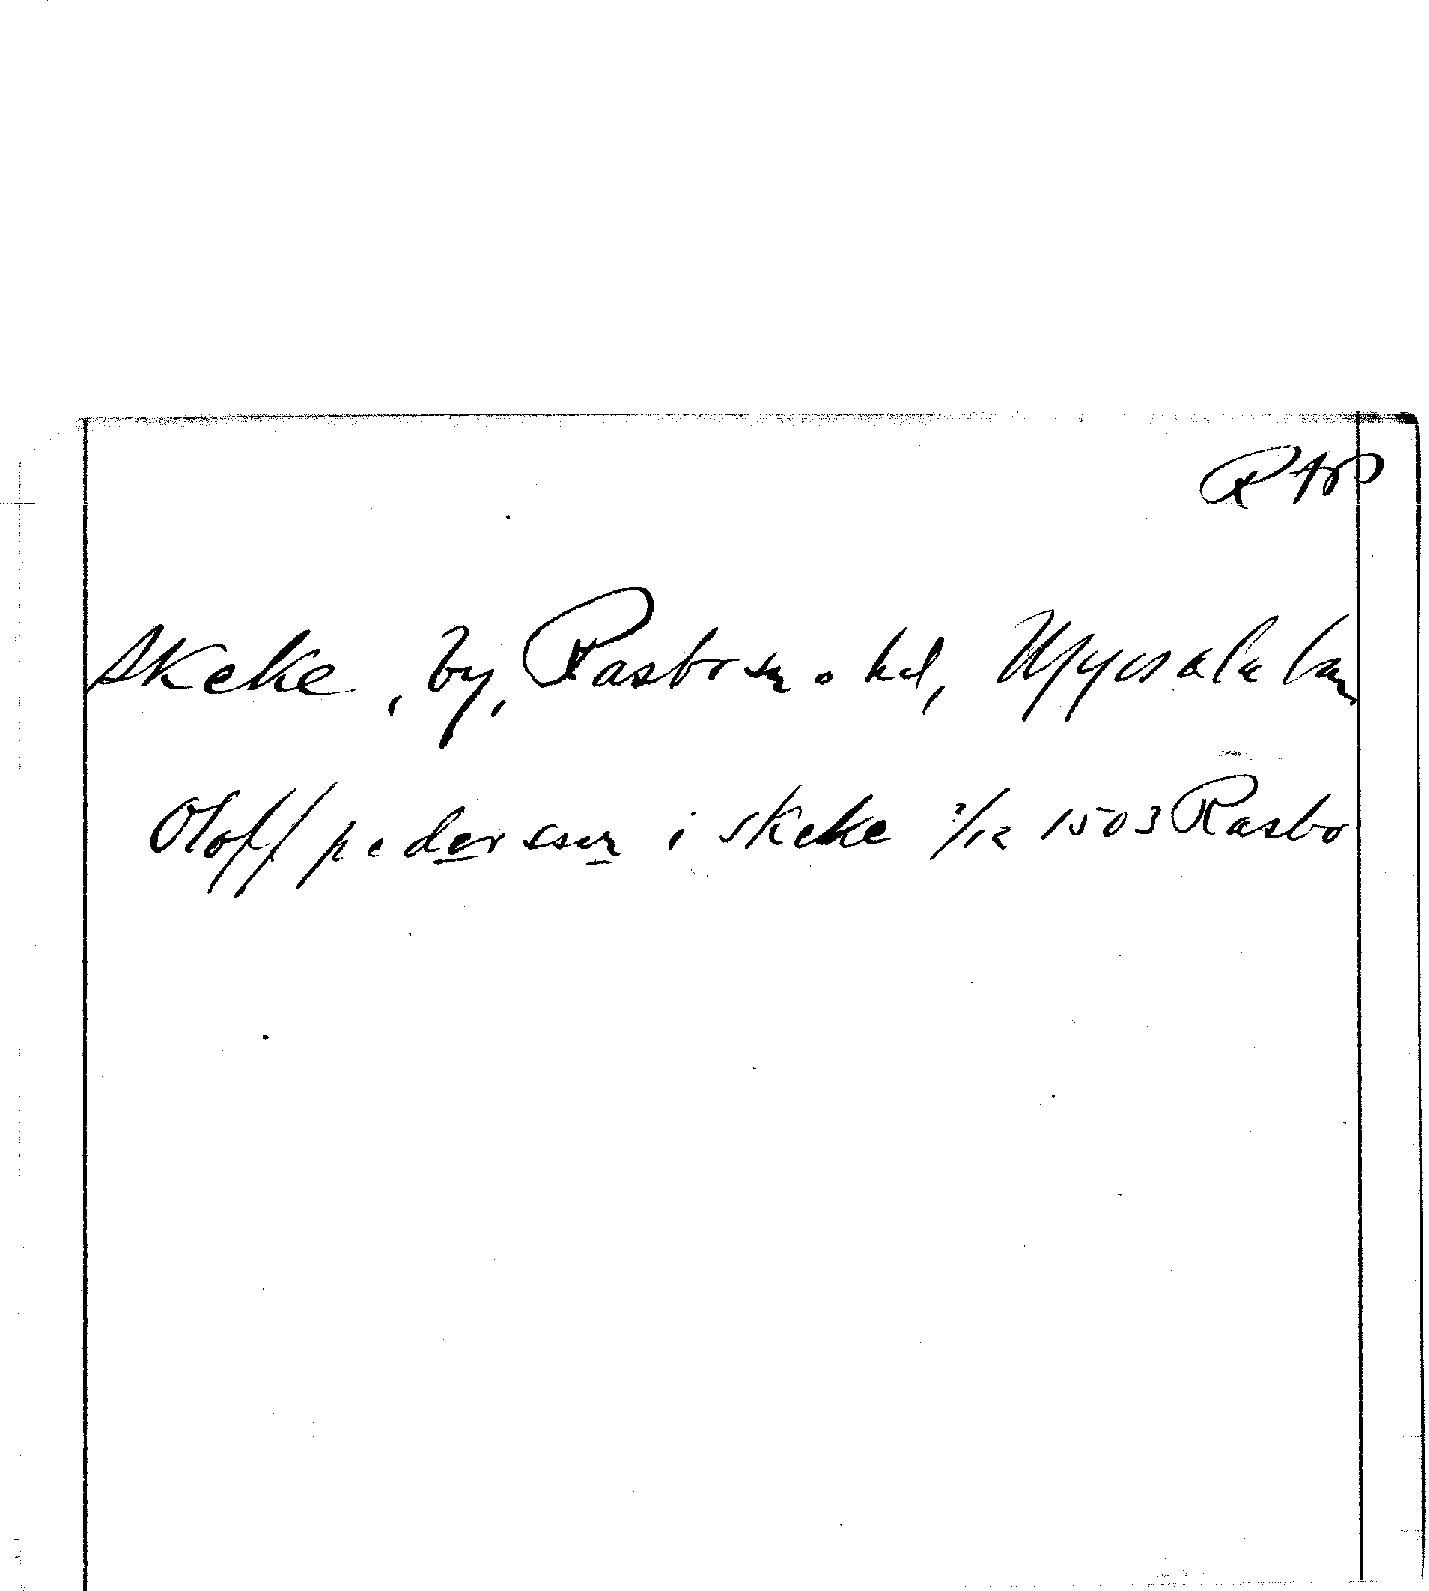 RAP
Skeke, by, Rasbo sn o. hd, Uppsala län
Oloff pedersen i skeke 3/12 1503 Rasbo